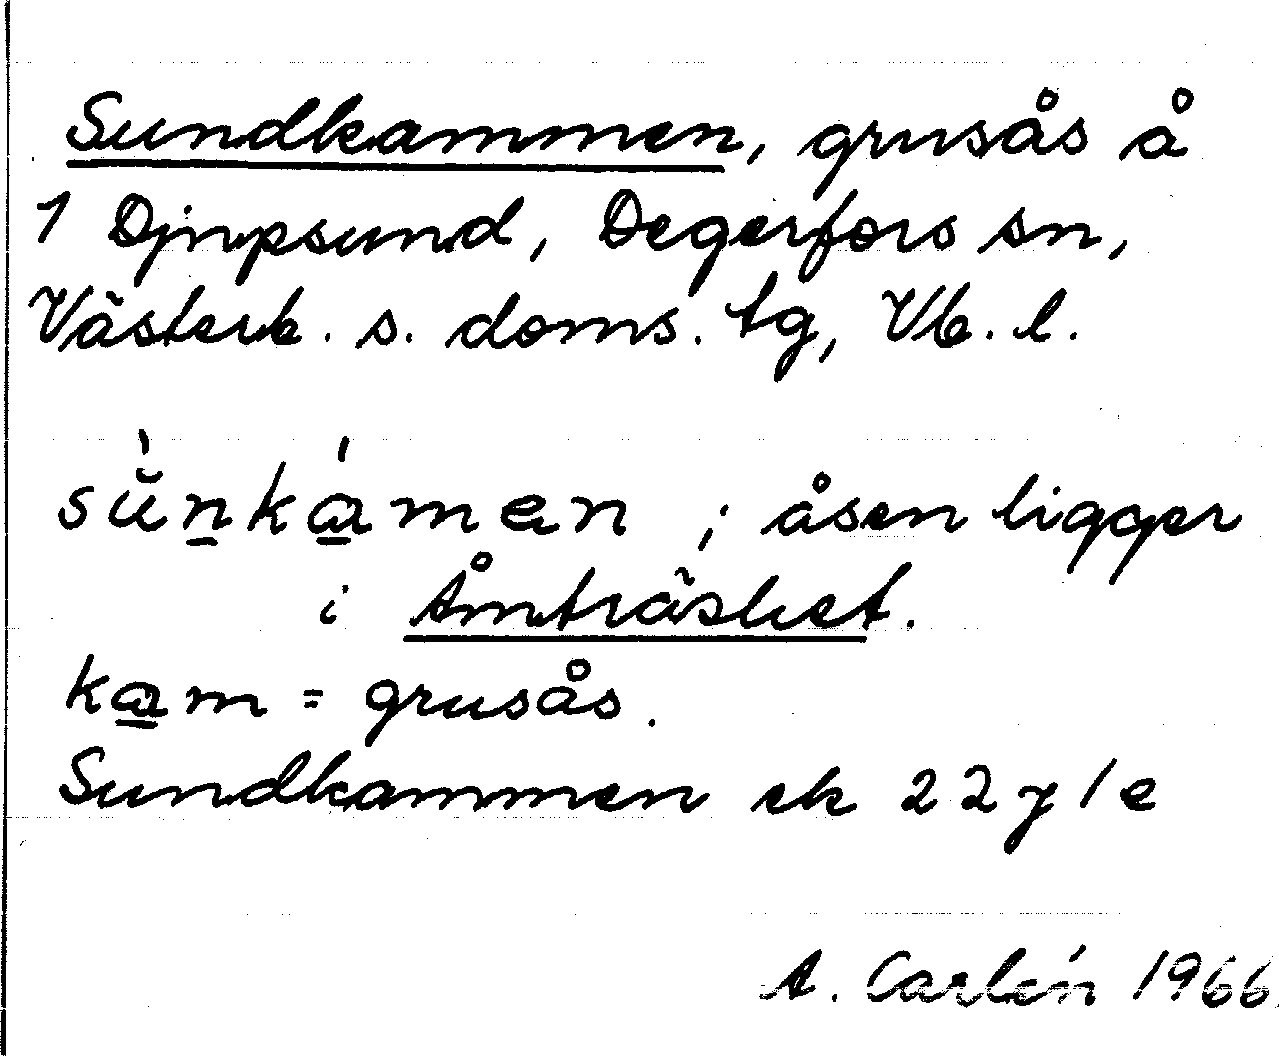 Sundkammen, grusås å
1 Djupsund, Degerfors sn,
Västerb. s. doms. tg, Vb. l.
sŭ̀nká̱men ; åsen ligger
i Åmträsket.
ka̱m = grusås.
Sundkammen ek 22 y/e
A. Carlén 1966.